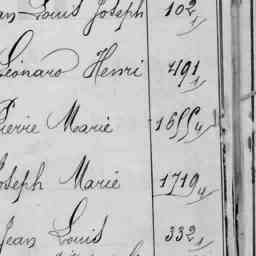 an Louis Joseph 102/1
Léonard Henri 491/1
Pierre Marie 1655/4
Joseph Marie 1719/4
Jean Louis 332/1